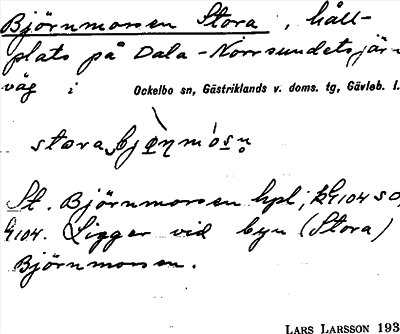 Björnmossen Stora, håll-
plats på Dala-Norrsundets jär-
väg i Ockelbo sn, Gästriklands v. doms. tg, Gävleb. l.
stora
St. Björnmossen hpl;
4104. Ligger vid byn (Stora)
Björnmossen.
LARS LARSSON 193